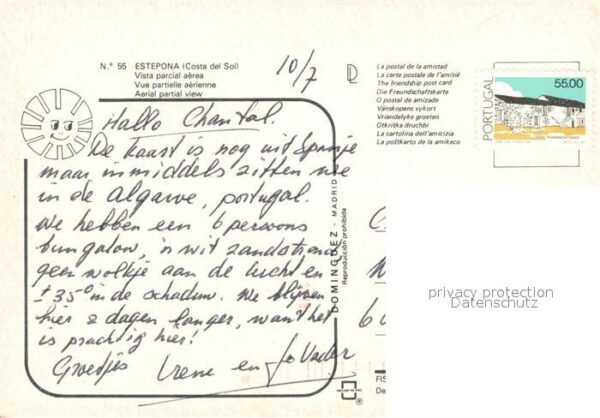 N.° 55 ESTEPONA (Costa del Sol)
Vista parcial aérea
Vue partielle aérienne
Aerial partial view
10/7
Hallo Chantal.
De kaart is nog uit Spanje
maar inmiddels zitten we
in de Algarve, portugal.
We hebben een 6 persoons
bungalow, 'n wit zandstrand
geen wolkje aan de lucht en
± 35° in de schaduw. We blijven
hier 2 dagen langer, want het
is prachtig hier!
Groetjes Irene en Vader
DOMINGUEZ - MADRID
Reproducción prohibida
La postal de la amistad
La carte postale de l'amitié
The friendship post card
Die Freundschaftskarte
O postal de amizade
Vänskapens vykort
Vriendelyke groeten
Otkritka druchbi
La cartolina dell'amicizia
La poŝtkarto de la amikeco
PORTUGAL
55.00
privacy protection
Datenschutz
FIS
De